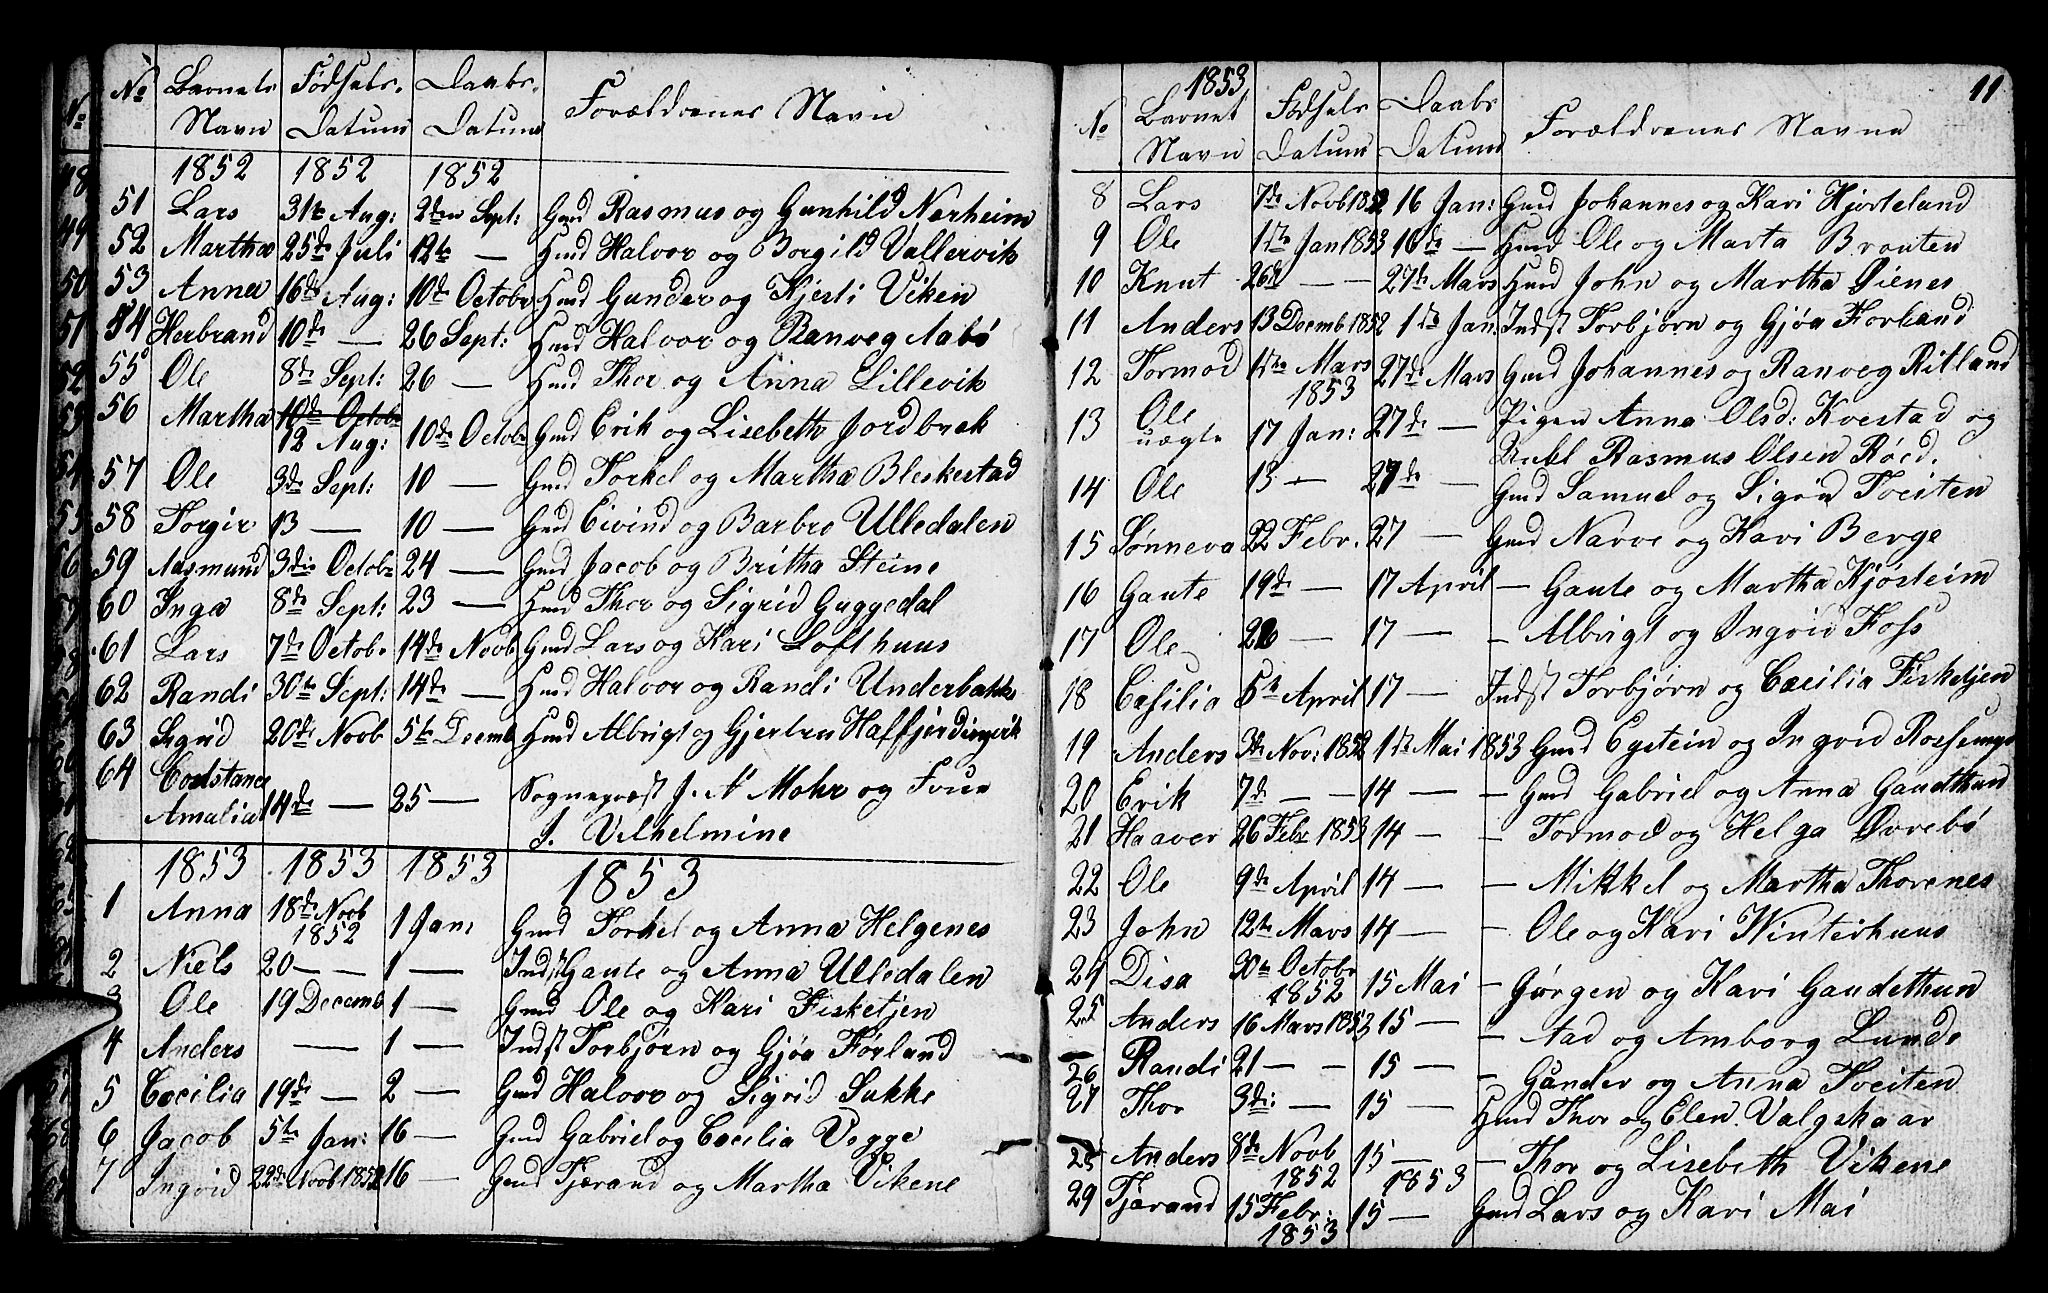 No Barnets Navn Fødsels Datum Daabs Datum Forældrenes Navn
1852 1852 1852
51 Lars 31te Aug: 2den Sept: Gmd Rasmus og Gunhild Nærheim
52 Martha 25de Juli 12te — Hmd Halvor og Borgild Vallervik
53 Anna 16de Aug: 10de Octobr Hmd Gunder og Kjersti Viken
54 Herbrand 10de — 26 Sept: Hmd Halvor og Ranveg Aabö
55 Ole 8de Sept: 26 — Hmd Thor og Anna Lillevik
56 Martha 10de Octobr
12 Aug: 10de Octobr Gmd Erik og Lisebeth Jordbræk
57 Ole 3de Sept: 10 — Gmd Torkel og Martha Bleskestad
58 Torgir 13 — 10 — Gmd Eivind og Barbro Ulledalen
59 Aasmund 3die Octobr 24 — Gmd Jacob og Britha Steine
60 Inga 8de Sept: 23 — Hmd Thor og Sigrid Guggedal
61 Lars 7de Octobr 14de Novb Gmd Lars og Kari Lofthuus
62 Randi 30te Sept: 14de — Hmd Halvor og Randi Underbakke
63 Sigrid 20de Novb 5te Decemb Hmd Albrigt og Gjertru Haffjerdingvik
64 Constance
Amalia 14de — 25 — Sognepræst J. A Mohr og Frue
J. Vilhelmine
1853 1853 1853 1853
1 Anna 18de Novb
1852 1 Jan: Gmd Torkel og Anna Helgenes
2 Niels 20 — — 1 — Indst Gaute og Anna Ulledalen
3 Ole 19 Decemb 1 — Gmd Ole og Kari Fisketjen
4 Anders — 1 — Indst Torbjørn og Gjøa Førland
5 Cæcilia 19de — 2 — Gmd Halvor og Sigrid Sukke
6 Jacob 5te Jan: 16 — Gmd Gabriel og Cæcilia Vegge
7 Ingrid 22de Novb 1852 16 — Gmd Tjærand og Martha Vikene
1853 11
No Barnet Navn Fødsels Datum Daabs Datum Forældrenes Navne
8 Lars 7de Novb 1852 16 Jan: Gmd Johannes og Kari Hjorteland
9 Ole 1ste Jan 1853 16de — Hmd Ole og Marta Brauten
10 Knut 26de — — 27de Mars Hmd John og Martha Øienes
11 Anders 13 Decemb 1852 1ste Jan: Indst Torbjørn og Gjøa Forland
12 Tormod 1ste Mars
1853 27de Mars Gmd Johannes og Ranveg Ritland
13 Ole
uægte 17 Jan: 27de — Pigen Anna Olsd: Kvestad og
Rubl Rasmus Olsen Røed.
14 Ole 13 — 27de — Gmd Samuel og Sigrid Tveiten
15 Sønneva 22 Febr. 27 — Gmd Narve og Kari Berge
16 Gaute 19de — 17 April — Gaute og Martha Kjøsteim
17 Ole 26 — 17 — — Albrigt og Ingrid Foss
18 Cæsilia 5te April 17 — Indst Torbjørn og Cæcilia Fisketjen
19 Anders 3de Nov: 1852 1ste Mai 1853 Gmd Eystein og Ingrid
20 Erik 7de — — 14 — — Gmd Gabriel og Anna Gaudthun
21 Haaver 26 Febr 1853 14 — — Tormod og Helga Øvrebö
22 Ole 9de April 14 — — Mikkel og Martha Thorenes
23 John 12te Mars 14 — — Ole og Kari Winterhuus
24 Disa 30te Octobr
1852 15 Mai — Gørgen og Kari Gaudethun
25 Anders 16 Mars 1853 15 — — Aad og Amborg Lunde
26 Randi 21 — — 15 — — Gunder og Anna Tveiten
27 Thor 3die: — 15 — Hmd Thor og Elen Valgskaar
28 Anders 8de Novb
1852 15 — 1853 — Thor og Lisebeth Vikene
29 Tjærand 15 Febr:
1853 15 — Gmd Lars og Kari Mai